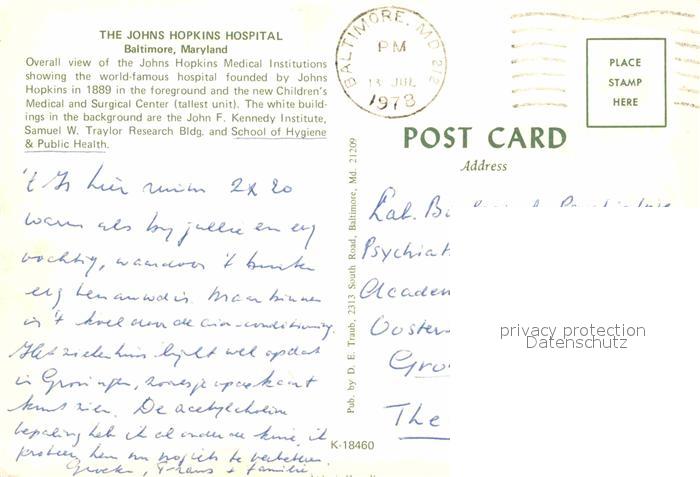 THE JOHNS HOPKINS HOSPITAL
Baltimore, Maryland
Overall view of the Johns Hopkins Medical Institutions
showing the world-famous hospital founded by Johns
Hopkins in 1889 in the foreground and the new Children's
Medical and Surgical Center (tallest unit). The white build-
ings in the background are the John F. Kennedy Institute,
Samuel W. Traylor Research Bldg. and School of Hygiene
& Public Health.
't Is hier ruim 2x zo
warm als bij jullie en erg
vochtig, waardoor 't buiten
erg benauwd is. Maar binnen
is 't koel door de air-conditioning.
Het ziekenhuis lijkt wel op dat
in Groningen, zoals je op de kaart
kunt zien. De acetylcholine
bepaling heb ik al onder de knie, ik
probeer hem nu nog iets te verbeteren.
Groeten, Frans + familie.
Pub. by D. E. Traub, 2313 South Road, Baltimore, Md. 21209
K-18460
BALTIMORE, MD 212
PM
13 JUL
1978
PLACE
STAMP
HERE
POST CARD
Address
Lab.
Psychiat
Academ
Ooster
Gro
The
privacy protection
Datenschutz